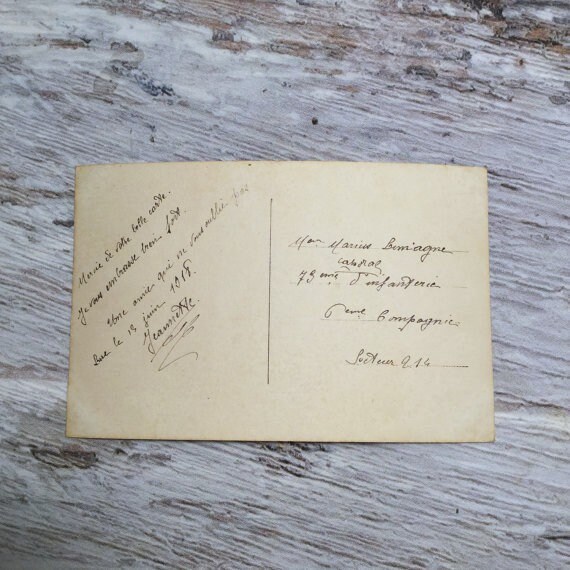 Merci de votre belle carte.
Je vous embrasse bien fort
Une amie qui ne vous oublie pas
le 13 juin 1918.
Jeannette
Mon Marius
caporal
73eme d'infanterie
6eme Compagnie
Secteur 916